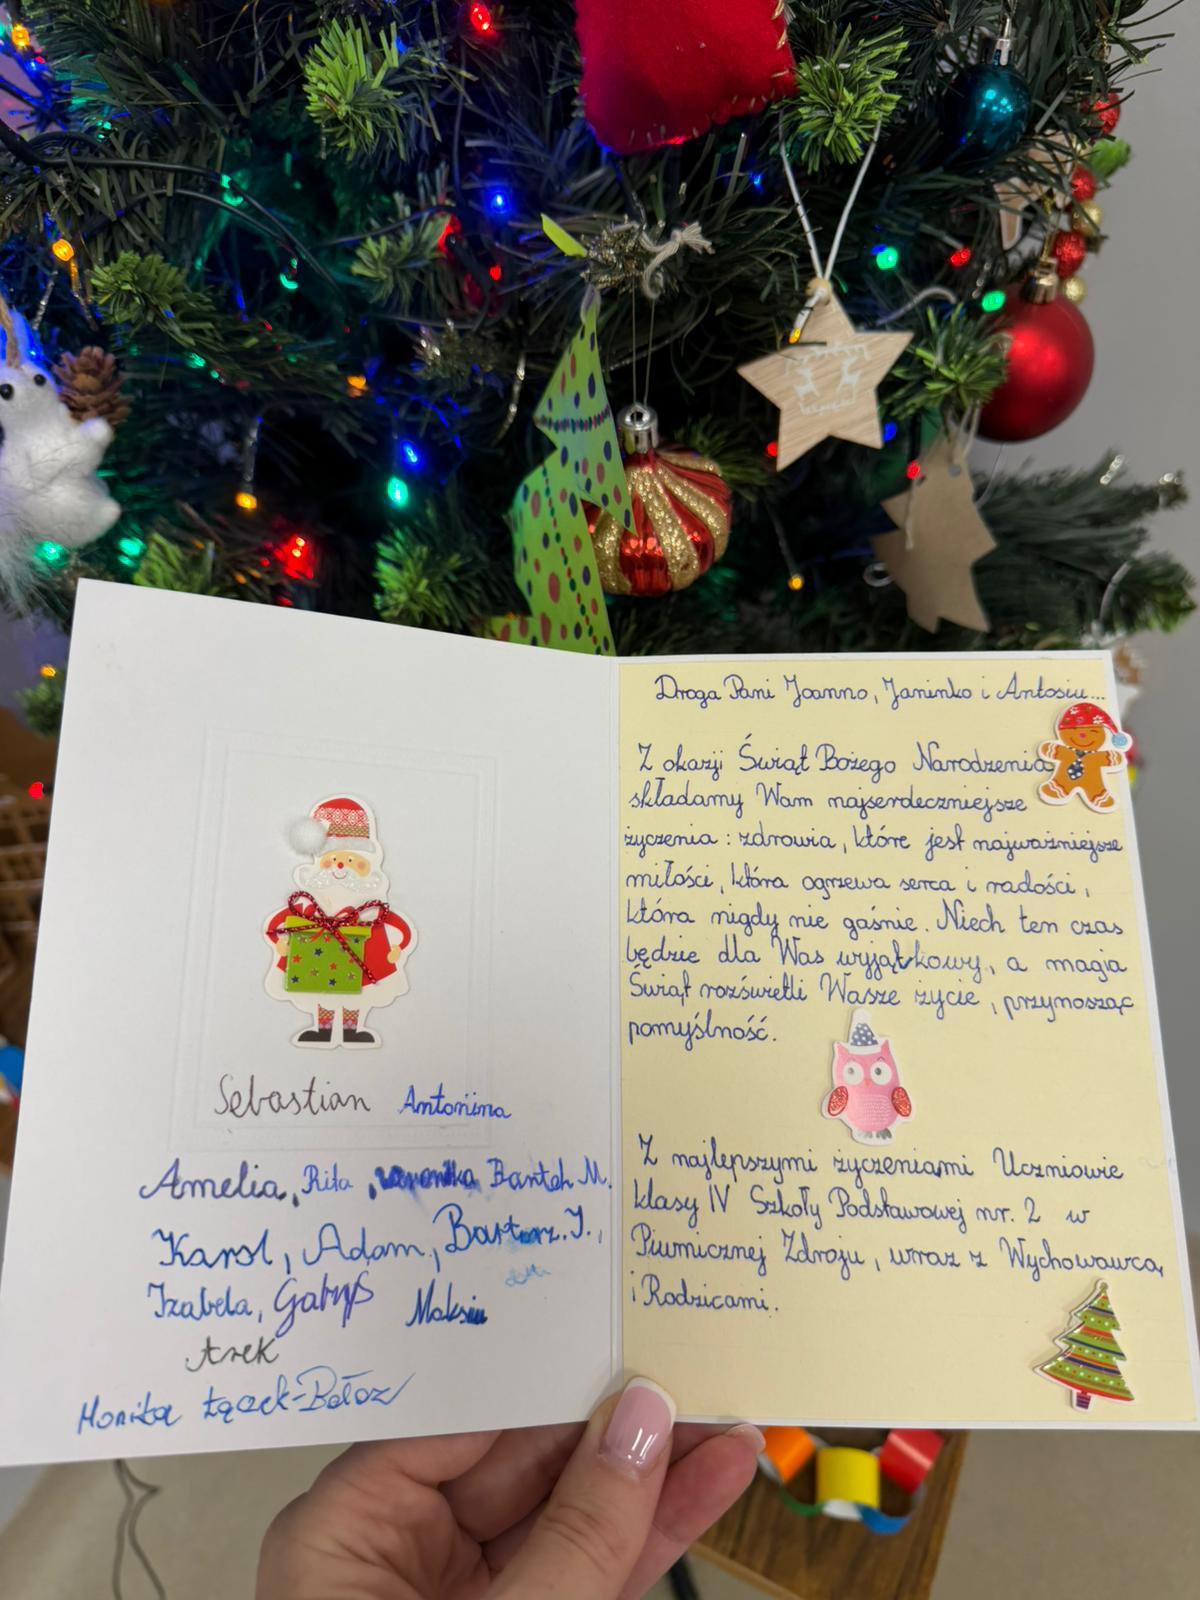 Sebastian Antonina
Amelia, Rita, Weronika Bartek M.
Karol, Adam, Bartosz. J.,
Izabela, Gabryś Maksiu
Arek
Monika Łącek-Bołoz
Droga Pani Joanno, Janinko i Antosiu...
Z okazji Świąt Bożego Narodzenia
składamy Wam najserdeczniejsze
życzenia: zdrowia, które jest najważniejsze
miłości, która ogrzewa serca i radości,
która nigdy nie gaśnie. Niech ten czas
będzie dla Was wyjątkowy, a magia
Świąt rozświetli Wasze życie, przynosząc
pomyślność.
Z najlepszymi życzeniami Uczniowie
klasy IV Szkoły Podstawowej nr. 2 w
Piwnicznej Zdroju, wraz z Wychowawcą
i Rodzicami.